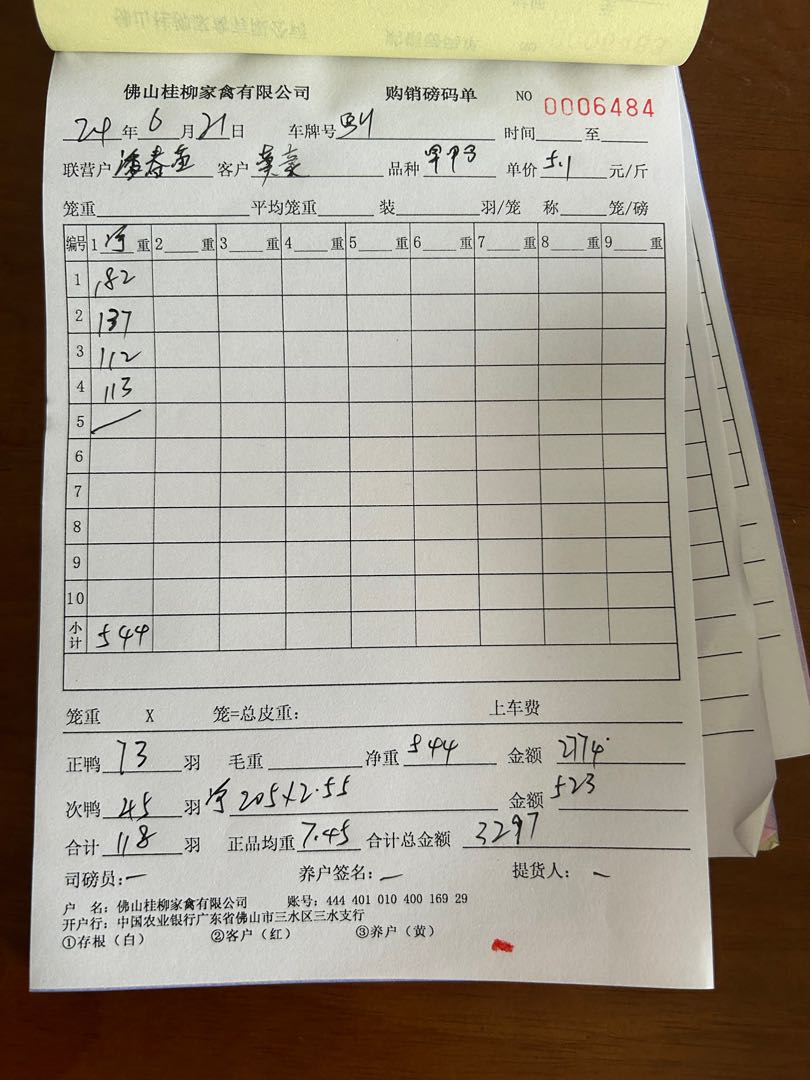 佛山桂柳家禽有限公司 购销磅码单 NO 0006484
24年6月21日 车牌号 时间 至
联营户 潘春 客户 品种 单价 5.1 元/斤
笼重 平均笼重 装 羽/笼 称 笼/磅
编号 1 净 重 2 重 3 重 4 重 5 重 6 重 7 重 8 重 9 重
1 182
2 137
3 112
4 113
5
6
7
8
9
10
小计 544
笼重 X 笼=总皮重: 上车费
正鸭 73 羽 毛重 净重 544 金额 2774
次鸭 45 羽 净 205×2.55 金额 523
合计 118 羽 正品均重 7.45 合计总金额 3297
司磅员: 养户签名: 提货人:
户 名: 佛山桂柳家禽有限公司 账号: 444 401 010 400 169 29
开户行: 中国农业银行广东省佛山市三水区三水支行
①存根(白) ②客户(红) ③养户(黄)